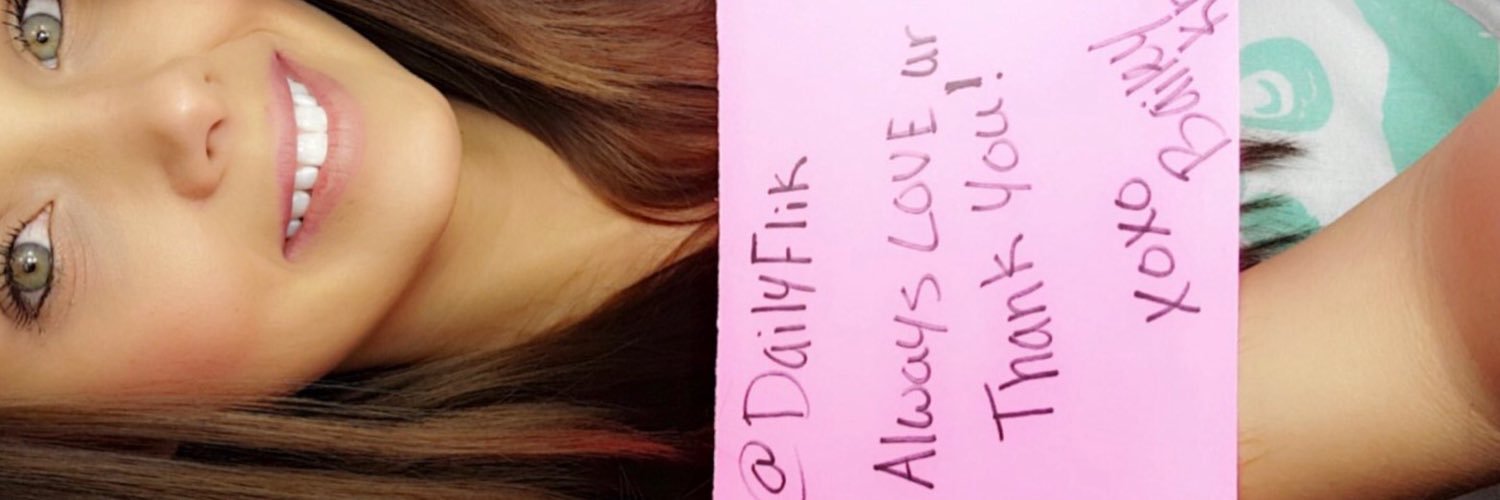 @DailyFlik
Always LOVE ur
Thank You!
xoxo
Bailey